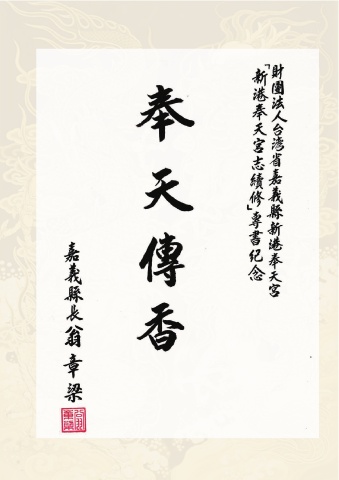 財團法人台灣省嘉義縣新港奉天宮
「新港奉天宮志續修」專書紀念
奉天傳香
嘉義縣長翁章梁